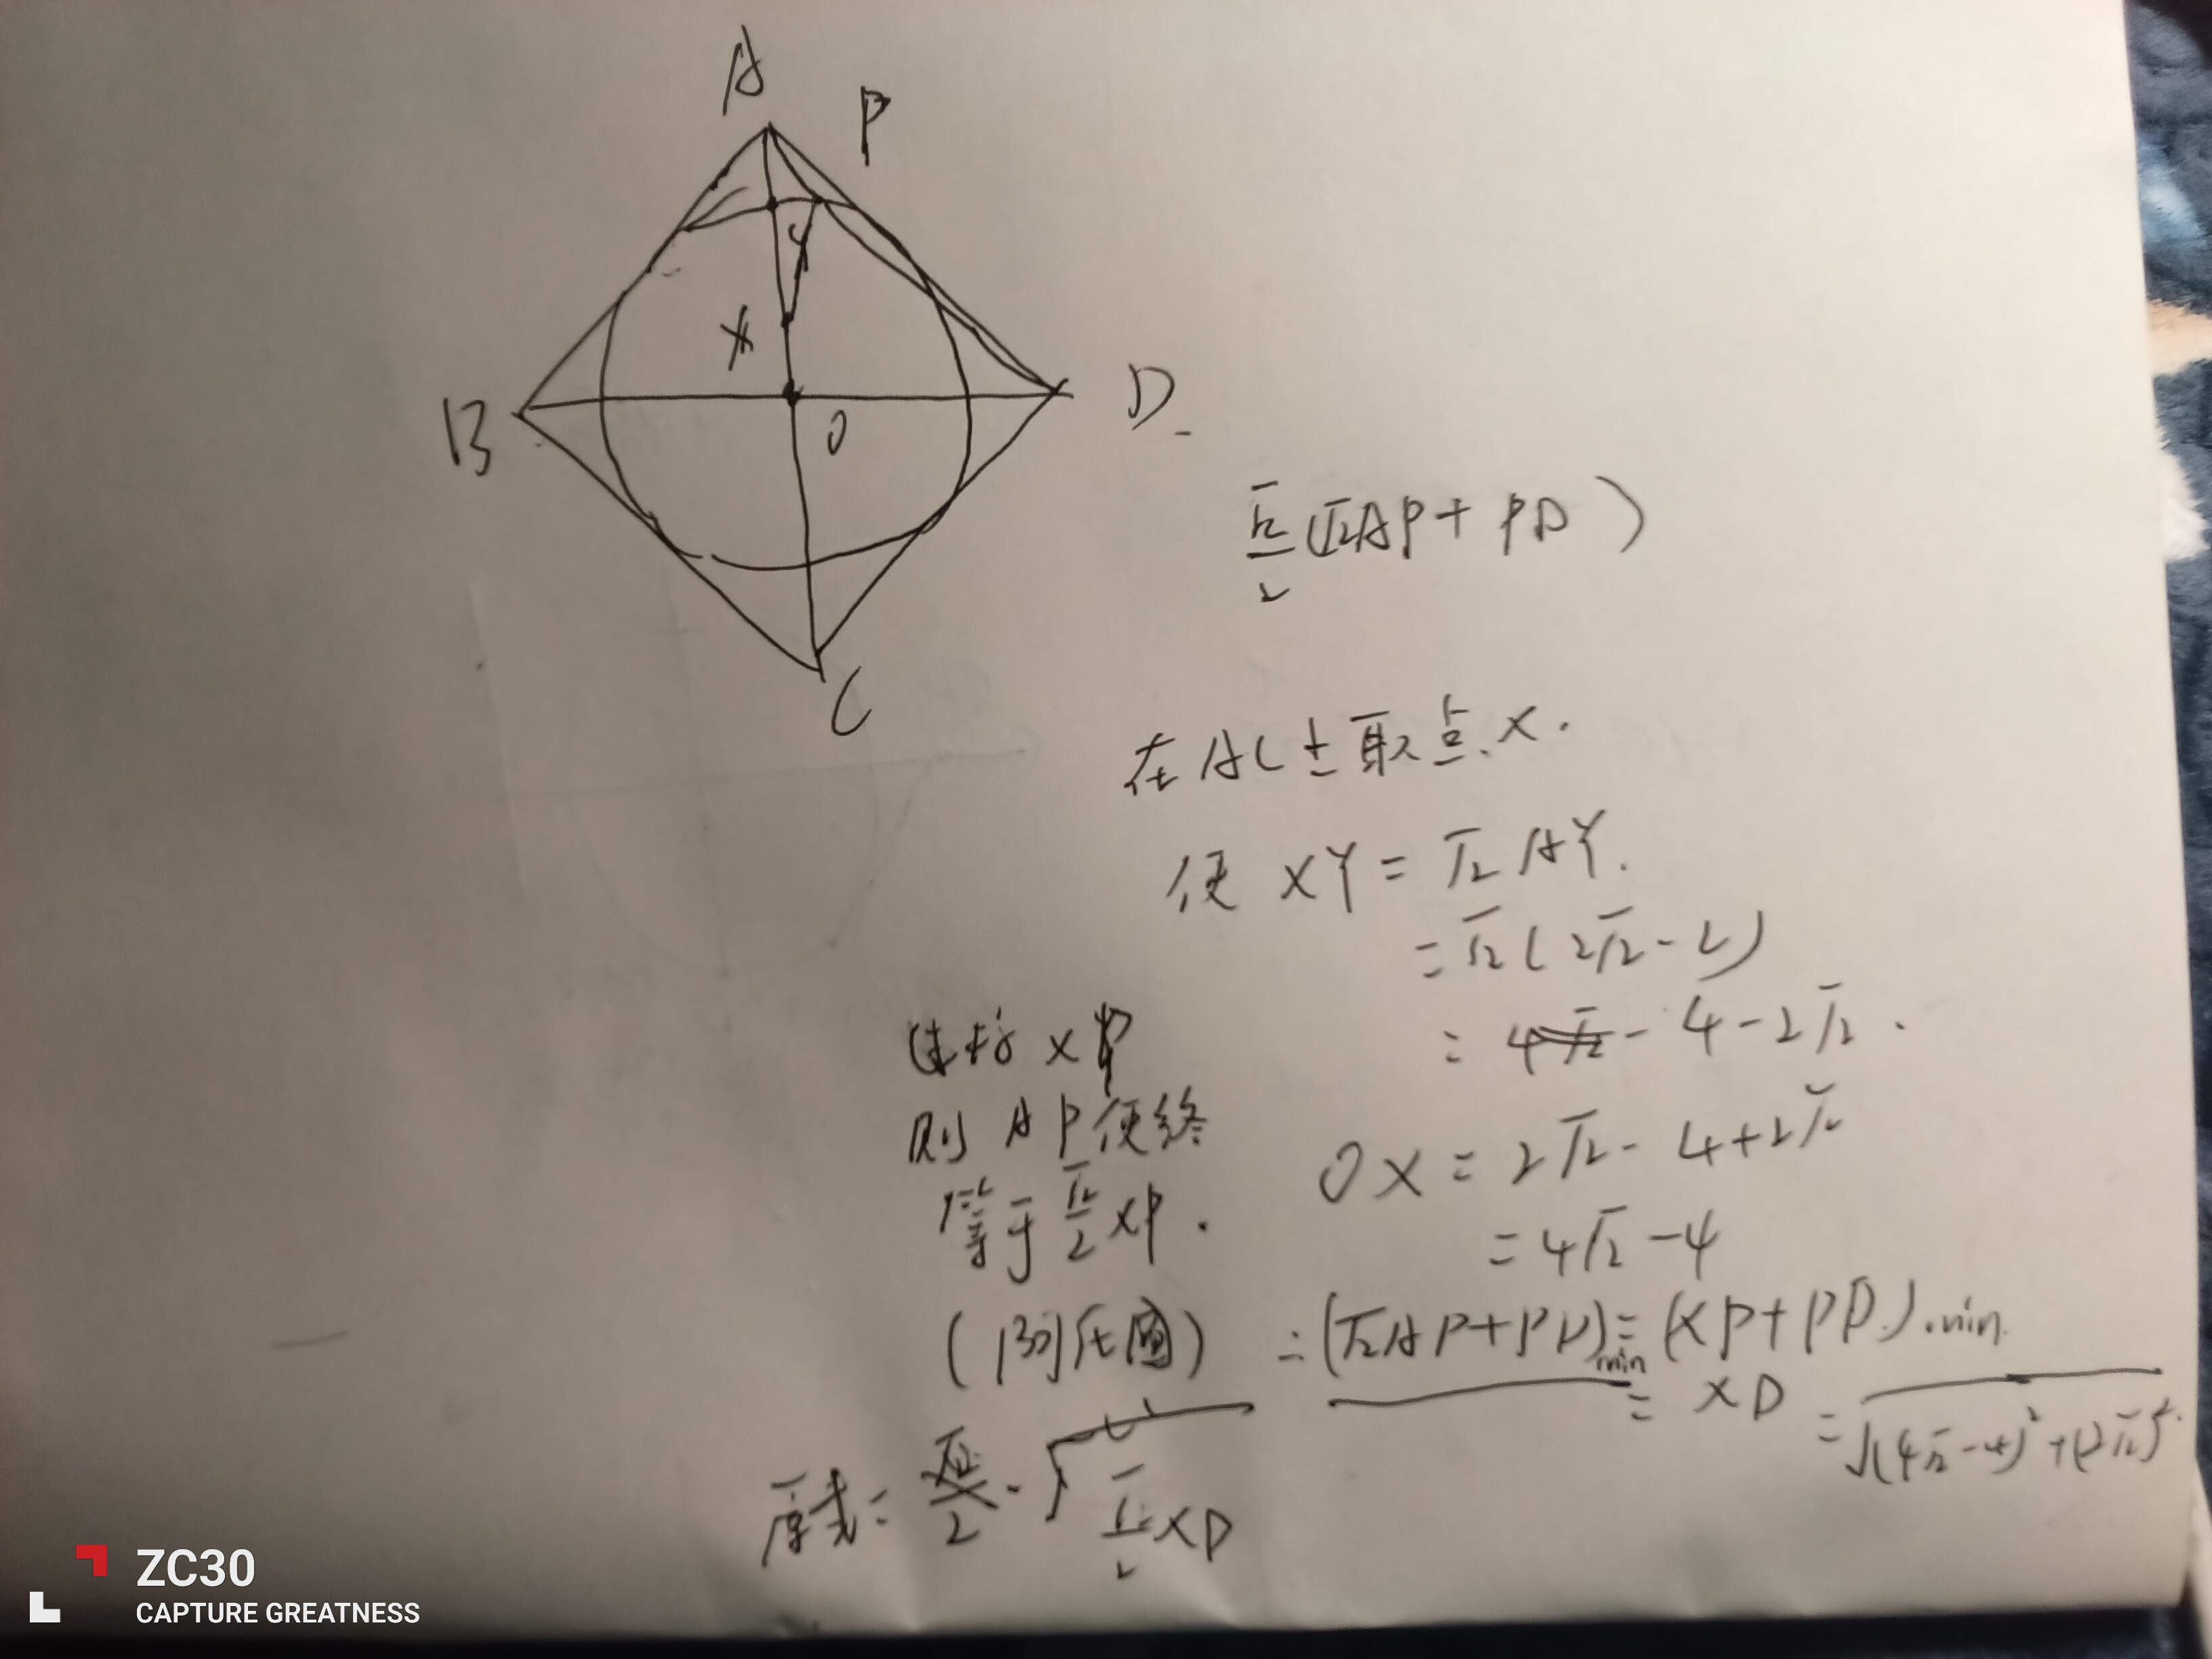 A
P
Y
X
B
O
D
C
√2/2(√2AP+PD)
在AC上取点X.
使 XY=√2AY.
=√2(2√2-2)
=4-2√2.
OX=2√2-4+2√2
=4√2-4
连接XP
则AP使终
等于√2/2XP.
(阿氏圆)
(√2AP+PD)min=(XP+PD).min
=XD=√(4√2-4)²+(2√2)²
原式=√2/2XD
ZC30
CAPTURE GREATNESS